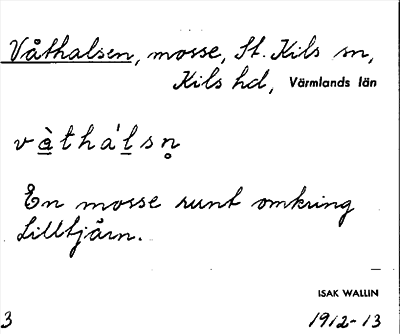 Våthalsen, mosse, St. Kils sn,
Kils hd, Värmlands län
v à̲ t h a ́ l̲ s n̥
En mosse runt omkring
Lilltjärn.
ISAK WALLIN
3
1912-13